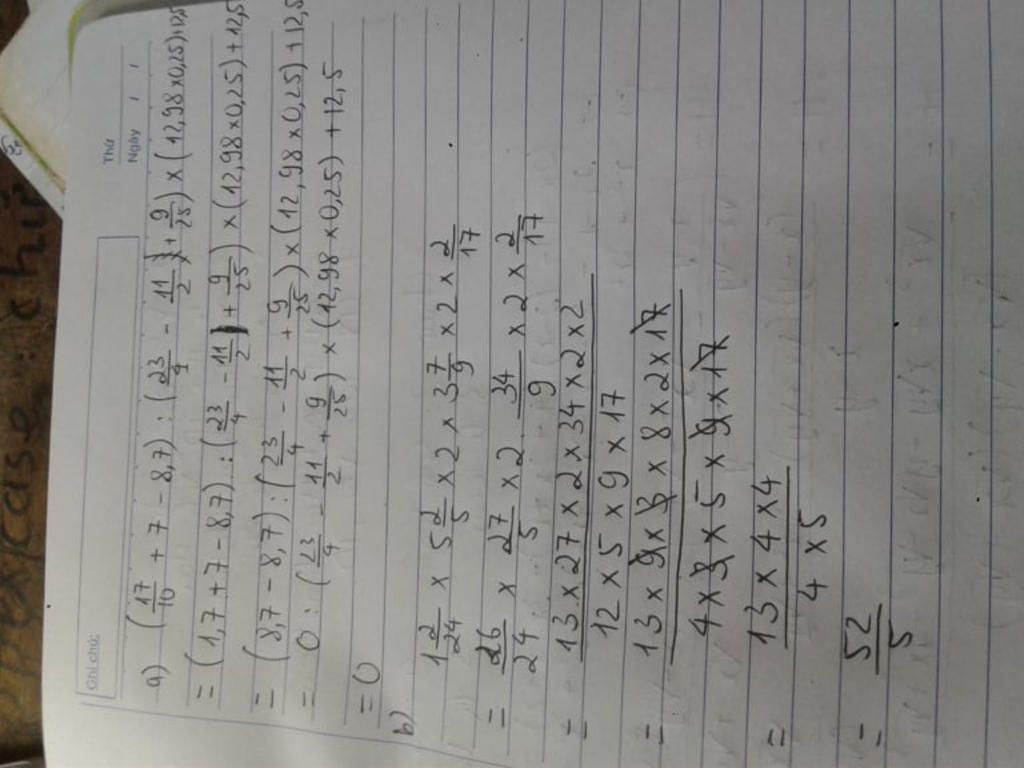 Ghi chú:
Thứ
Ngày / /
a) (17/10 + 7 - 8,7) : (23/4 - 11/2 + 9/25) × (12,98 × 0,25) + 12,5
= (1,7 + 7 - 8,7) : (23/4 - 11/2) + 9/25) × (12,98 × 0,25) + 12,5
= (8,7 - 8,7) : (23/4 - 11/2 + 9/25) × (12,98 × 0,25) + 12,5
= 0 : (23/4 - 11/2 + 9/25) × (12,98 × 0,25) + 12,5
= 0
b) 1 2/24 × 5 2/5 × 2 × 3 7/9 × 2 × 2/17
= 26/24 × 27/5 × 2 × 34/9 × 2 × 2/17
= 13 × 27 × 2 × 34 × 2 × 2
12 × 5 × 9 × 17
= 13 × 9 × 3 × 8 × 2 × 17
4 × 3 × 5 × 9 × 17
= 13 × 4 × 4
4 × 5
= 52/5